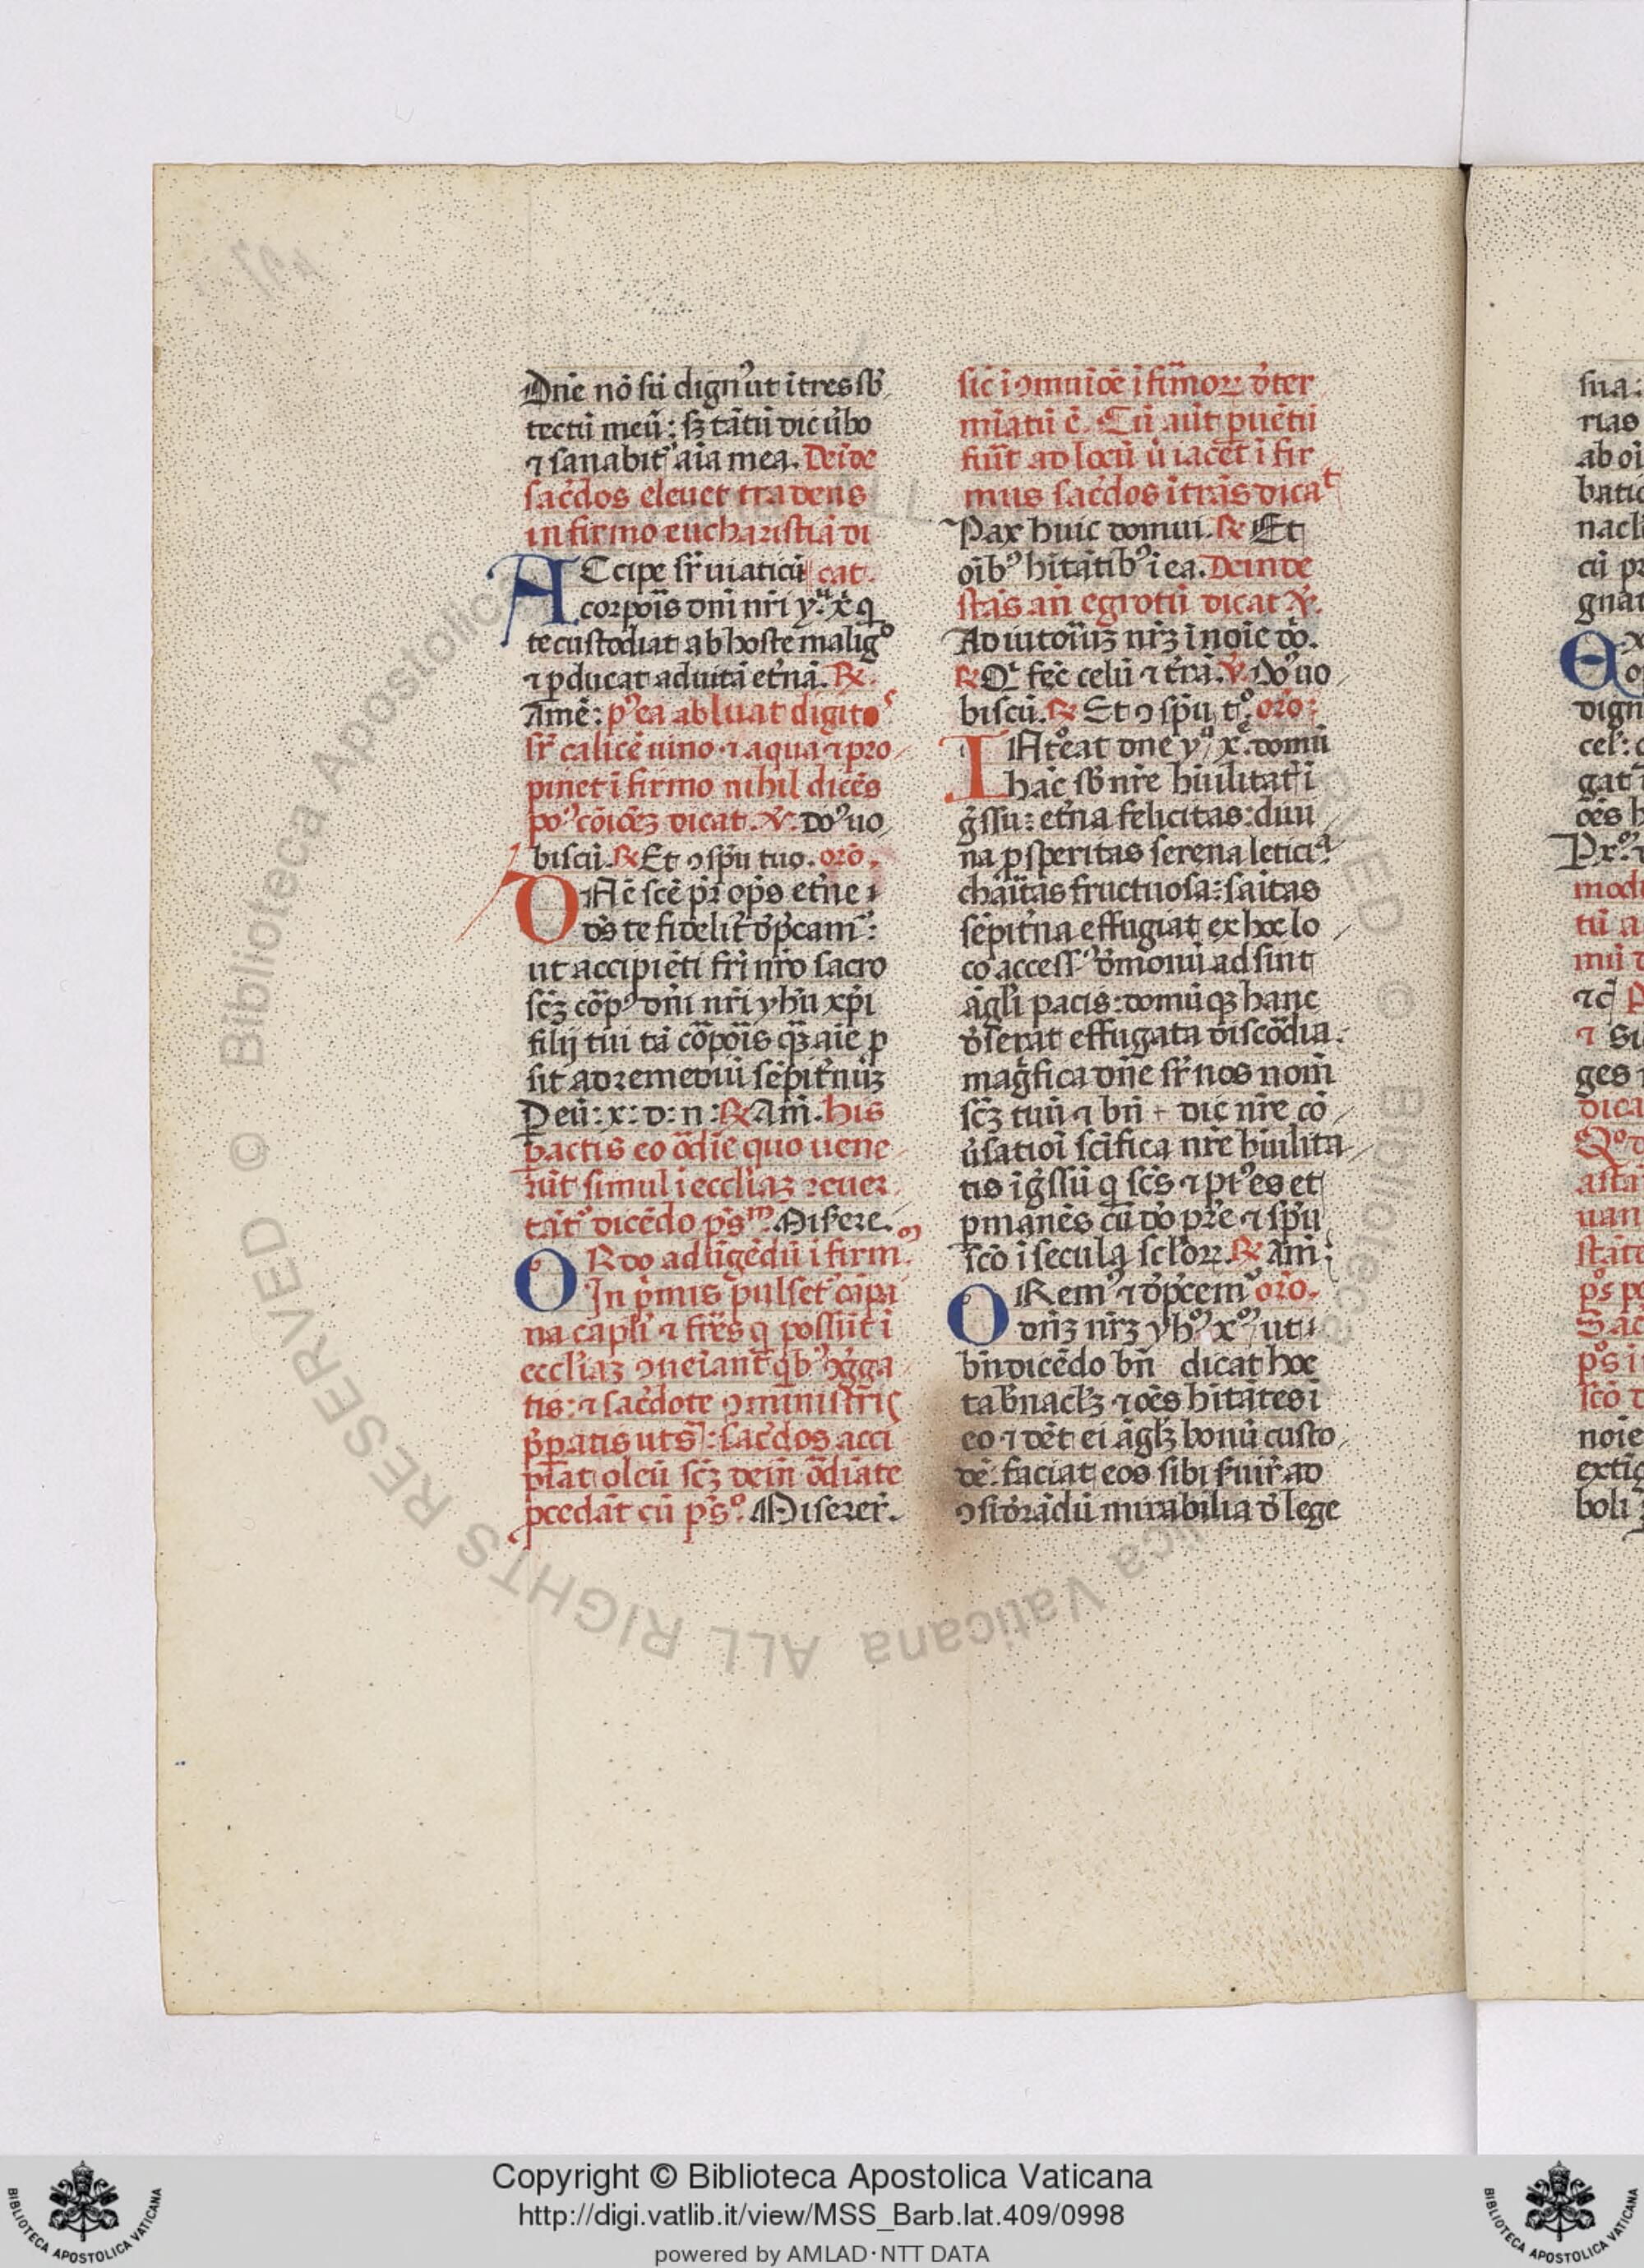 Dn̄e nō sū dign᷒ ut ītres sb̄
tectū meū: sꝫ tātū dic ūbo
⁊ sanabit᷒ aīa mea. Deīde
sac̄dos eleuet tradens
infirmo eucharistiā di
ACcipe fr̄ uiaticū cat.
corpoīs dn̄i nr̄i yᵘ. x̄. q
te custodiat ab hoste maligᵒ
⁊ ꝑducat ad uitā et̄nā. ℟.
Amē: p᷒ea abluat digitoˢ
fr̄ calicē uino ⁊ aqua ⁊ pro
pinet īfirmo nihil dicēs
po᷒ cōiōēꝫ dicat. ℣. Do᷒ uo
biscū. ℟ Et ꝯ sp̄u tuo. orō.
DNē scē pr̄ op̄s et̄ne
ds̄ te fidelit̄ dp̄cam᷒:
ut accipiēti fr̄i nr̄o sacro
scꝫ corp᷒ dn̄i nr̄i yhū xp̄i
filij tui tā corpoīs qꝫ aīe ꝓ
sit ad remediū sēpit̄nuꝫ
Peū: x: d: n: ℟ Am̄. his
ꝑactis eo ōdīe quo uene
rūt simul ī eccl̄iaꝫ reuer
tāt᷒ dicēdo ps̄ᵐ. Misere.
ORdo ad ūgēdū ī firmꝰ.
In p̄mis pulset᷒ cāpa
na capl̄i ⁊ fr̄es q possūt ī
eccl̄iaꝫ ꝯueiant qb᷒ ꝯḡga
tis: ⁊ sac̄dote ꝯ ministris
p̄ꝑatis ut sᵃ: sac̄dos acci
piat oleū scꝫ dein̄ ōdīate
ꝓcedāt cū ps̄ᵒ. Miserer̄.
sic ī ꝯmuīoē īfirmoꝝ dt̄er
mīatū ē. Cū aūt ꝑuētū
fūit ad locū ū iacet īfir
mus sac̄dos ītrās dicaᵗ
Pax huic domui. ℟ Et
oīb᷒ hītātib᷒ ī ea. Deinde
stās an̄ egrotū dicat ℣.
Adiutoīuꝫ nr̄ꝫ ī noīe dō.
℟ Qⁱ fec̄ celū ⁊ t̄rā. ℣. Do᷒ uo
biscū. ℟ Et ꝯ sp̄u tᵒ. orō:
INt᷒eat dn̄e yᵘ x̄ᵉ. domū
hāc sb̄ nr̄e hūilitatⁱ ī
g̊ssu: et̄na felicitas: diui
na ꝓsperitas serena leticiᵃ
cha͞itas fructuosa: saītas
sēpit̄na effugiat ex hoc lo
co access᷒ dēmonū adsint
āgl̄i pacis: domūqꝫ hanc
dēserat effugata discōdia.
mag̊fica dn̄e sr̄ nos nom̄
scꝫ tuū ⁊ bn̄ + dic nr̄e cō
ūsatioī scīfica nr̄e hūilita
tis īg̊ssū q sc̄s ⁊ pi᷒ es et
ꝑmanēs cū dō pr̄e ⁊ sp̄u
scō ī secula scl̄oꝝ. ℟ Am̄:
ORem᷒ ⁊ dp̄cem᷒ orō.
dn̄ꝫ nr̄ꝫ yhᵘ᷒ xᵐ᷒ ut
bn̄dicēdo bn̄ dicat hoc
tab̄nacl̄ꝫ ⁊ oēs hītātes ī
eo ⁊ det ei āgl̄ꝫ bonū custo
dē: faciat eos sibi s̄uir̄ ad
ꝯsid̄andū mirabilia d̄ lege
sua:
rias
ab oī
batio
nacl
cū pr
gnat
dign
cel᷒: c
gat ī
oēs h
modu
tū a
mū
⁊c̄
⁊ Su
ges
dica
asta
uan
stāt
ps̄ pe
Sac
ps̄ ī
scō
noīe
extig
boli
Copyright © Biblioteca Apostolica Vaticana
http://digi.vatlib.it/view/MSS_Barb.lat.409/0998
powered by AMLAD·NTT DATA
BIBLIOTECA APOSTOLICA VATICANA
BIBLIOTECA APOSTOLICA VATICANA
© Biblioteca Apostolica Vaticana ALL RIGHTS RESERVED